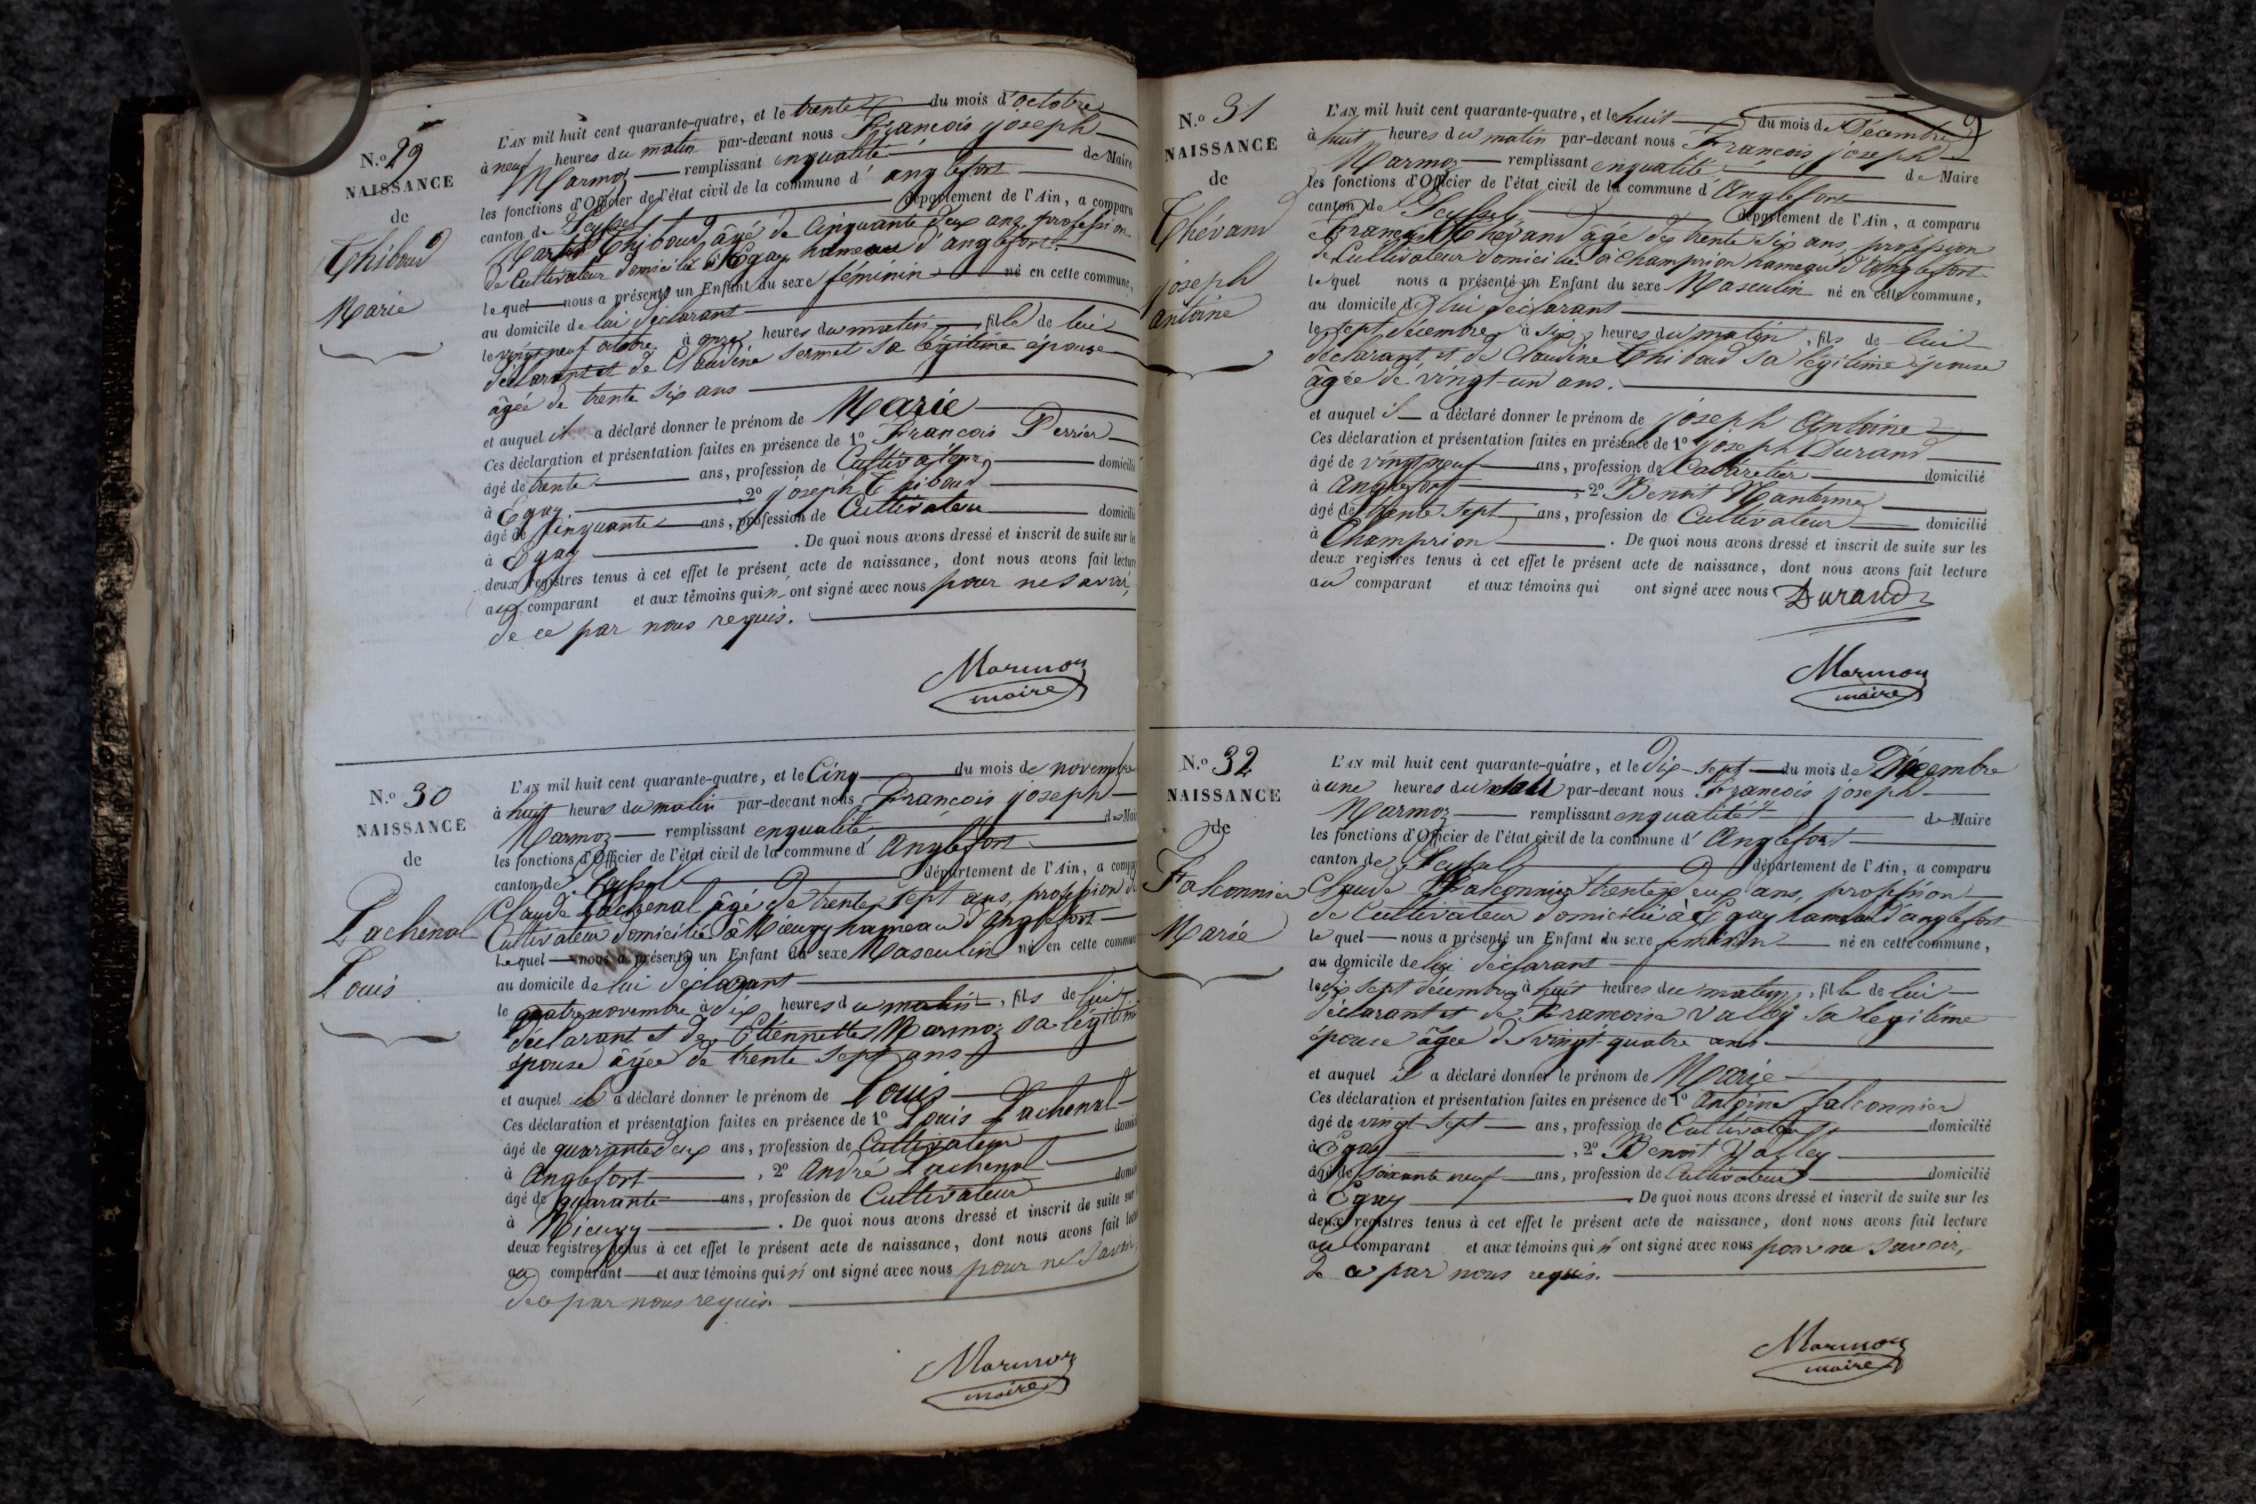 N.º 29
NAISSANCE
de
Thiboud
Marie
L'AN mil huit cent quarante-quatre, et le trente du mois d'octobre
à neuf heures du matin par-devant nous François joseph
Marmoz remplissant enqualité de Maire
les fonctions d'Officier de l'état civil de la commune d' anglefort
canton de Seyssel département de l'Ain, a comparu
Thiboud âgé de Cinquante deux ans, profession
de Cultivateur domicilié à Egay hameau d'anglefort.
le quel nous a présenté un Enfant du sexe féminin né en cette commune,
au domicile de lui déclarant
le vingt neuf octobre à onze heures du matin, fille de lui
déclarant et de Claudine Sermet sa légitime épouse
âgée de trente six ans
et auquel il a déclaré donner le prénom de Marie
Ces déclaration et présentation faites en présence de 1º François Perrier
âgé de trente ans, profession de Cultivateur domicilié
à Egay 2º joseph Thiboud
âgé de Cinquante ans, profession de Cultivateur domicilié
à Egay . De quoi nous avons dressé et inscrit de suite sur les
deux registres tenus à cet effet le présent acte de naissance, dont nous avons fait lecture
au comparant et aux témoins qui n'ont signé avec nous pour ne savoir,
de ce par nous requis.
Marmoz
maire
N.º 30
NAISSANCE
de
Lachenal
Louis
L'AN mil huit cent quarante-quatre, et le Cinq du mois de novembre
à huit heures du matin par-devant nous François joseph
Marmoz remplissant enqualité de Maire
les fonctions d'Officier de l'état civil de la commune d' Anglefort
canton de Seyssel département de l'Ain, a comparu
Claude Lachenal âgé de trente sept ans, profession de
Cultivateur domicilié à Mieugy hameau d'Anglefort
le quel nous a présenté un Enfant du sexe Masculin né en cette commune
au domicile de lui déclarant
le quatre novembre à dix heures du matin, fils de lui
déclarant et de Etiennette Marmoz sa légitime
épouse âgée de trente sept ans
et auquel il a déclaré donner le prénom de Louis
Ces déclaration et présentation faites en présence de 1º Louis Lachenal
âgé de quarante deux ans, profession de Cultivateur domicilié
à Anglefort , 2º André Lachenal
âgé de quarante ans, profession de Cultivateur domicilié
à Mieugy . De quoi nous avons dressé et inscrit de suite sur
deux registres tenus à cet effet le présent acte de naissance, dont nous avons fait lecture
au comparant et aux témoins qui n'ont signé avec nous pour ne savoir,
de ce par nous requis.
Marmoz
maire
N.º 31
NAISSANCE
de
Thévand
joseph
antoine
L'AN mil huit cent quarante-quatre, et le huit du mois de Décembre
à huit heures du matin par-devant nous François joseph
Marmoz remplissant enqualité de Maire
les fonctions d'Officier de l'état civil de la commune d' Anglefort
canton de Seyssel département de l'Ain, a comparu
François Thévand âgé de trente six ans, profession
de Cultivateur domicilié à Champrion hameau d'Anglefort
le quel nous a présenté un Enfant du sexe Masculin né en cette commune,
au domicile de lui déclarant
le sept décembre à six heures du matin, fils de lui
déclarant et de Claudine Thiboud sa légitime épouse
âgée de vingt-un ans.
et auquel il a déclaré donner le prénom de joseph Antoine
Ces déclaration et présentation faites en présence de 1º joseph Durand
âgé de vingt neuf ans, profession de Cabaretier domicilié
à Anglefort , 2º Benoit
âgé de trente sept ans, profession de Cultivateur domicilié
à Champrion . De quoi nous avons dressé et inscrit de suite sur les
deux registres tenus à cet effet le présent acte de naissance, dont nous avons fait lecture
au comparant et aux témoins qui ont signé avec nous Durand
Marmoz
maire
N.º 32
NAISSANCE
de
Falconnier
Marie
L'AN mil huit cent quarante-quatre, et le Dix-sept du mois de Décembre
à une heures du par-devant nous François joseph
Marmoz remplissant enqualité de Maire
les fonctions d'Officier de l'état civil de la commune d' Anglefort
canton de Seyssel département de l'Ain, a comparu
Claude Falconnier trente deux ans, profession
de Cultivateur domicilié à Egay hameau d'anglefort
le quel nous a présenté un Enfant du sexe féminin né en cette commune,
au domicile de lui déclarant
le dix sept décembre à huit heures du matin, fille de lui
déclarant et de Françoise Valley sa légitime
épouse âgée de vingt-quatre ans
et auquel il a déclaré donner le prénom de Marie
Ces déclaration et présentation faites en présence de 1º Antoine falconnier
âgé de vingt sept ans, profession de Cultivateur domicilié
à Egay , 2º Benoit Valley
âgé de soixante neuf ans, profession de Cultivateur domicilié
à Egay . De quoi nous avons dressé et inscrit de suite sur les
deux registres tenus à cet effet le présent acte de naissance, dont nous avons fait lecture
au comparant et aux témoins qui n'ont signé avec nous pour ne savoir,
de ce par nous requis.
Marmoz
maire